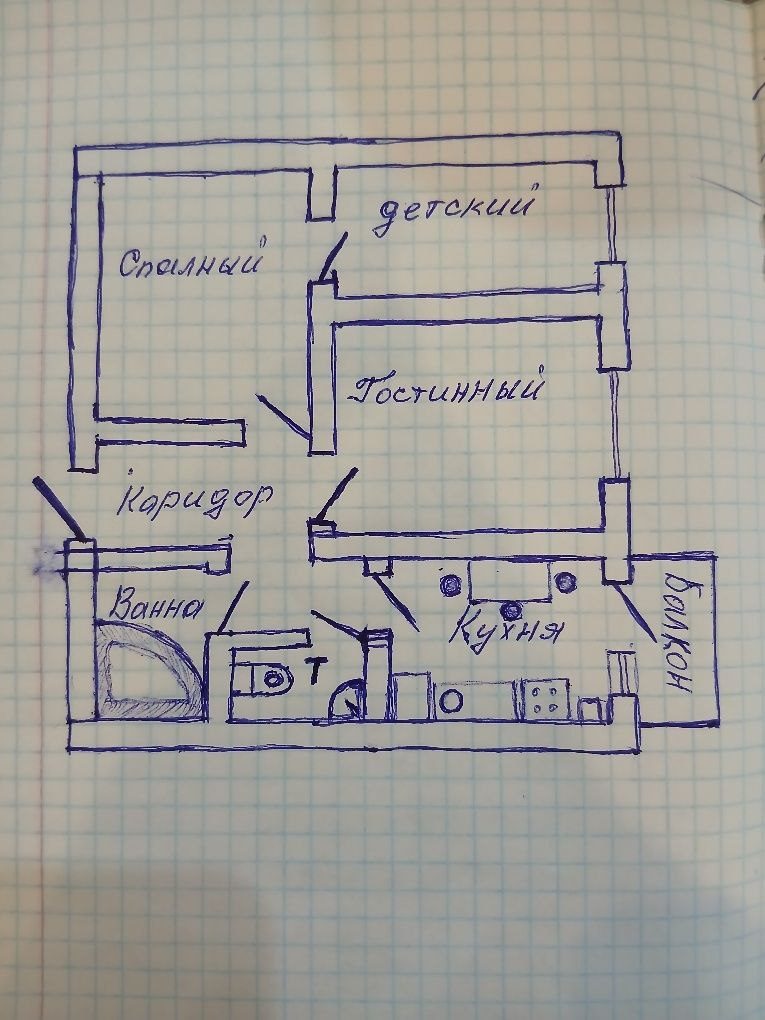 детский
Спалный
Гостинный
Каридор
Ванна
Кухня
Балкон
Т